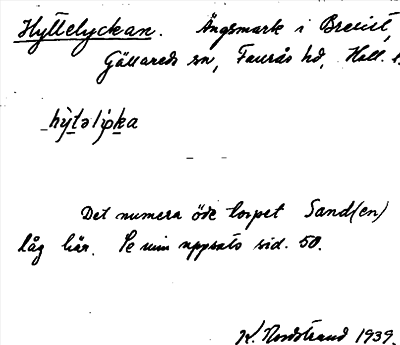 Hyttelyckan. Ängsmark i Brecist,
Gällareds sn, Faurås hd, Hall. l.
hỳtəlỳka
Det numera öde torpet Sand(en)
låg här. Se min uppsats sid. 50.
K. Nordstrand 1939.